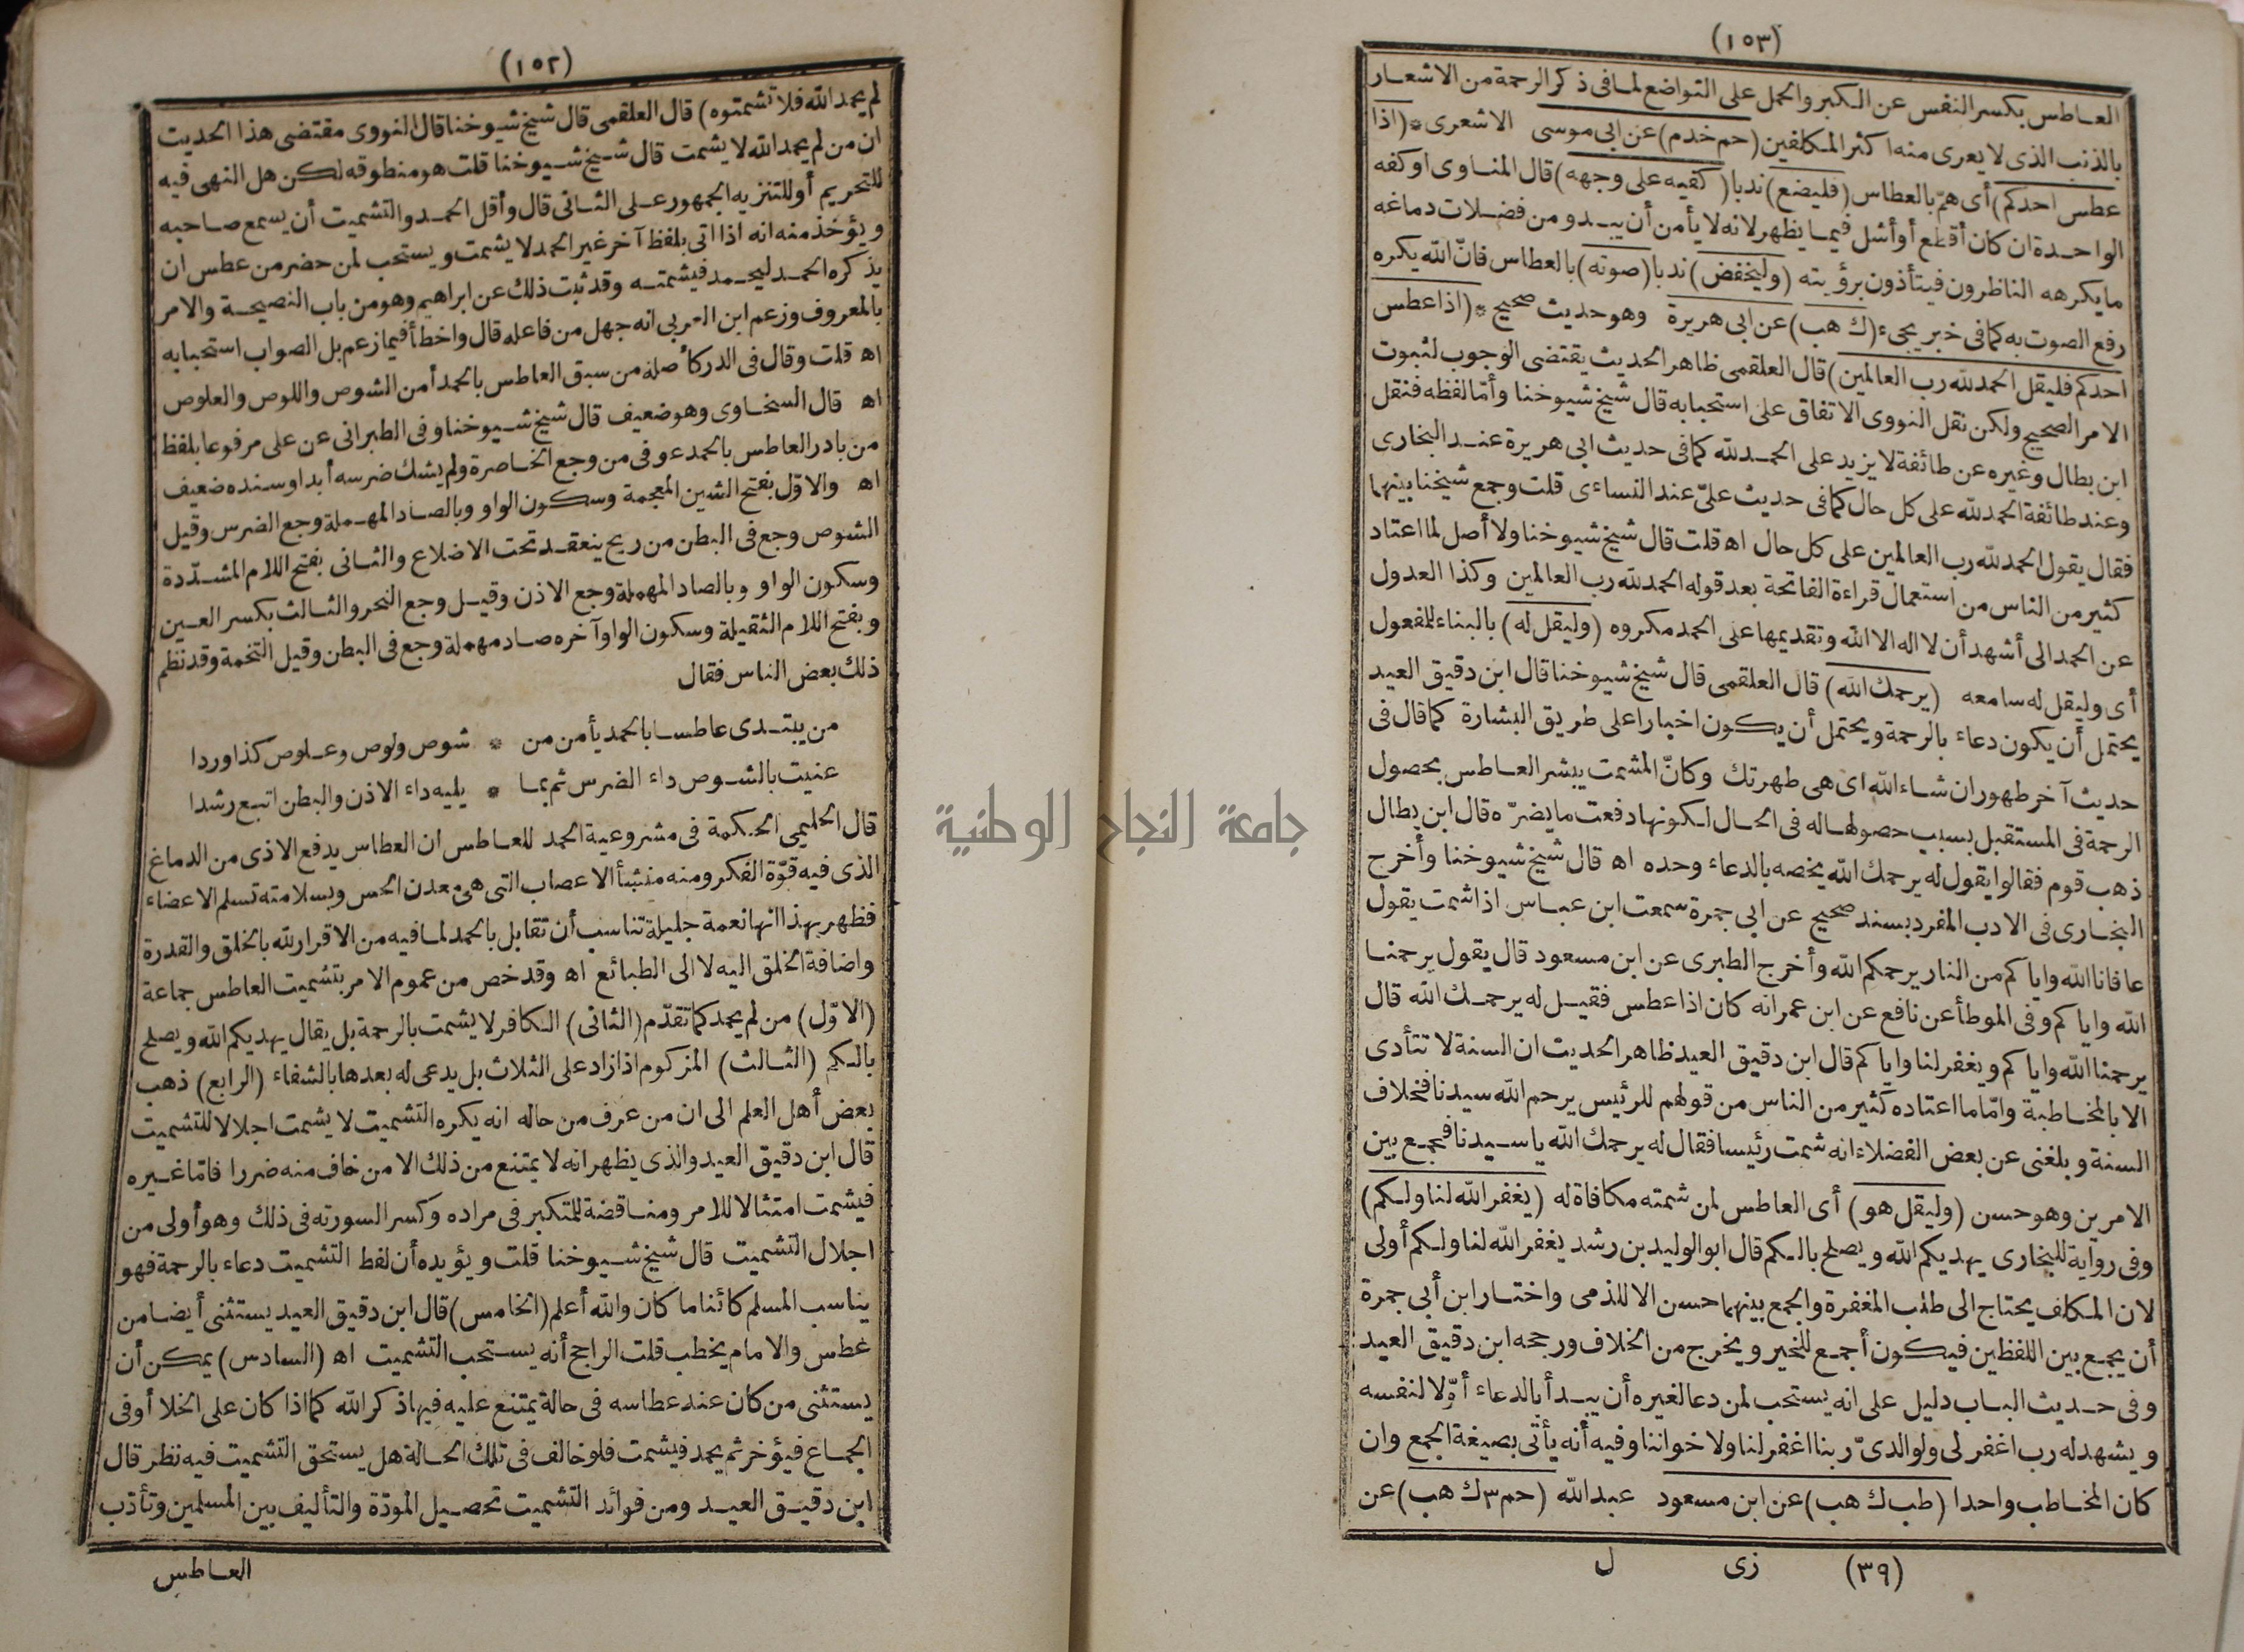 (١٥٢)
لم يحمد الله فلا تشمتوه) قال العلقمى قال شيخ شيوخنا قال النووى مقتضى هذا الحديث
ان من لم يحمد الله لا يشمت قال شيخ شيوخنا قلت هو منطوقه لكن هل النهى فيه
للتحريم أو للتنزيه الجمهور على الثانى قال وأقل الحمد والتشميت أن يسمع صاحبه
ويؤخذ منه انه اذا اتى بلفظ آخر غير الحمد لا يشمت ويستحب لمن حضر من عطس ان
يذكره الحمد ليحمد فيشمته وقد ثبت ذلك عن ابراهيم وهو من باب النصيحة والامر
بالمعروف وزعم ابن العربى انه جهل من فاعله قال واخطأ فيما زعم بل الصواب استحبابه
اه قلت وقال فى الدر كأصله من سبق العاطس بالحمد أمن الشوص واللوص والعلوص
اه قال السخاوى وهو ضعيف قال شيخ شيوخنا وفى الطبرانى عن على مرفوعا بلفظ
من بادر العاطس بالحمد عوفى من وجع الخاصرة ولم يشك ضرسه أبدا وسنده ضعيف
اه والاوّل بفتح الشين المعجمة وسكون الواو وبالصاد المهملة وجع الضرس وقيل
الشوص وجع فى البطن من ريح ينعقد تحت الاضلاع والثانى بفتح اللام المشدّدة
وسكون الواو وبالصاد المهملة وجع الاذن وقيل وجع النحر والثالث بكسر العين
وبفتح اللام الثقيلة وسكون الواو آخره صاد مهملة وجع فى البطن وقيل التخمة وقد نظم
ذلك بعض الناس فقال
من يبتدى عاطسا بالحمد يأمن من * شوص ولوص وعلوص كذا وردا
عنيت بالشوص داء الضرس ثم بما * يليه داء الاذن والبطن اتبع رشدا
قال الحليمى الحكمة فى مشروعية الحمد للعاطس ان العطاس يدفع الاذى من الدماغ
الذى فيه قوّة الفكر ومنه منشأ الاعصاب التى هى معدن الحس وبسلامته تسلم الاعضاء
فظهر بهذا انها نعمة جليلة تناسب أن تقابل بالحمد لما فيه من الاقرار لله بالخلق والقدرة
واضافة الخلق اليه لا الى الطبائع اه وقد خص من عموم الامر بتشميت العاطس جماعة
(الاوّل) من لم يحمد كما تقدّم (الثانى) الكافر لا يشمت بالرحمة بل يقال يهديكم الله ويصلح
بالكم (الثالث) المزكوم اذا زاد على الثلاث بل يدعى له بعدها بالشفاء (الرابع) ذهب
بعض أهل العلم الى ان من عرف من حاله انه يكره التشميت لا يشمت اجلالا للتشميت
قال ابن دقيق العيد والذى يظهر انه لا يمتنع من ذلك الا من خاف منه ضررا فامّا غيره
فيشمت امتثالا للامر ومناقضة للمتكبر فى مراده وكسر السورته فى ذلك وهو أولى من
اجلال التشميت قال شيخ شيوخنا قلت ويؤيده أن لفظ التشميت دعاء بالرحمة فهو
يناسب المسلم كائنا ما كان والله أعلم (الخامس) قال ابن دقيق العيد يستثنى أيضا من
عطس والامام يخطب قلت الراجح أنه يستحب التشميت اه (السادس) يمكن أن
يستثنى من كان عند عطاسه فى حالة يمتنع عليه فيها ذكر الله كما اذا كان على الخلا أو فى
الجماع فيؤخر ثم يحمد فيشمت فلو خالف فى تلك الحالة هل يستحق التشميت فيه نظر قال
ابن دقيق العيد ومن فوائد التشميت تحصيل المودّة والتأليف بين المسلمين وتأدّب
العاطس
(١٥٣)
العاطس بكسر النفس عن الكبر والحمل على التواضع لما فى ذكر الرحمة من الاشعار
بالذنب الذى لا يعرى منه اكثر المكلفين (حم خد م) عن ابى موسى الاشعرى * (اذا
عطس احدكم) أى همّ بالعطاس (فليضع) ندبا (كفيه على وجهه) قال المناوى او كفه
الواحدة ان كان أقطع أو أشل فيما يظهر لانه لا يأمن أن يبدو من فضلات دماغه
ما يكرهه الناظرون فيتأذون برؤيته (وليخفض) ندبا (صوته) بالعطاس فانّ الله يكره
رفع الصوت به كما فى خبر يجىء (ك هب) عن ابى هريرة وهو حديث صحيح * (اذا عطس
احدكم فليقل الحمد لله رب العالمين) قال العلقمى ظاهر الحديث يقتضى الوجوب لثبوت
الامر الصحيح ولكن نقل النووى الاتفاق على استحبابه قال شيخ شيوخنا وأمّا لفظه فنقل
ابن بطال وغيره عن طائفة لا يزيد على الحمد لله كما فى حديث ابى هريرة عند البخارى
وعند طائفة الحمد لله على كل حال كما فى حديث علىّ عند النساءى قلت وجمع شيخنا بينهما
فقال يقول الحمد لله رب العالمين على كل حال اه قلت قال شيخ شيوخنا ولا أصل لما اعتاد
كثير من الناس من استعمال قراءة الفاتحة بعد قوله الحمد لله رب العالمين وكذا العدول
عن الحمد الى أشهد أن لا اله الا الله وتقديمها على الحمد مكروه (وليقل له) بالبناء للمفعول
أى وليقل له سامعه (يرحمك الله) قال العلقمى قال شيخ شيوخنا قال ابن دقيق العيد
يحتمل أن يكون دعاء بالرحمة ويحتمل أن يكون اخبارا على طريق البشارة كما قال فى
حديث آخر طهور ان شاء الله اى هى طهرتك وكانّ المشمت يبشر العاطس بحصول
الرحمة فى المستقبل بسبب حصولها له فى الحال لكونها دفعت ما يضرّه قال ابن بطال
ذهب قوم فقالوا يقول له يرحمك الله يخصه بالدعاء وحده اه قال شيخ شيوخنا وأخرج
البخارى فى الادب المفرد بسند صحيح عن ابى جمرة سمعت ابن عباس اذا شمت يقول
عافانا الله واياكم من النار يرحمكم الله وأخرج الطبرى عن ابن مسعود قال يقول يرحمنا
الله واياكم وفى الموطأ عن نافع عن ابن عمر انه كان اذا عطس فقيل له يرحمك الله قال
يرحمنا الله واياكم ويغفر لنا واياكم قال ابن دقيق العيد ظاهر الحديث ان السنة لا تتأدى
الا بالمخاطبة وامّا ما اعتاده كثير من الناس من قولهم للرئيس يرحم الله سيدنا فخلاف
السنة وبلغنى عن بعض الفضلاء انه شمت رئيسا فقال له يرحمك الله يا سيدنا فجمع بين
الامرين وهو حسن (وليقل هو) أى العاطس لمن شمته مكافاة له (يغفر الله لنا ولكم)
وفى رواية للبخارى يهديكم الله ويصلح بالكم قال ابو الوليد بن رشد يغفر الله لنا ولكم أولى
لان المكلف يحتاج الى طلب المغفرة والجمع بينهما حسن الا للذمى واختار ابن أبى جمرة
أن يجمع بين اللفظين فيكون أجمع للخير ويخرج من الخلاف ورجحه ابن دقيق العيد
وفى حديث الباب دليل على انه يستحب لمن دعا لغيره أن يبدأ بالدعاء أوّلا لنفسه
ويشهد له رب اغفر لى ولوالدىّ ربنا اغفر لنا ولاخواننا وفيه أنه يأتى بصيغة الجمع وان
كان المخاطب واحدا (طب ك هب) عن ابن مسعود عبد الله (حم ٣ ك هب) عن
(٣٩) زى ل
جامعة النجاح الوطنية